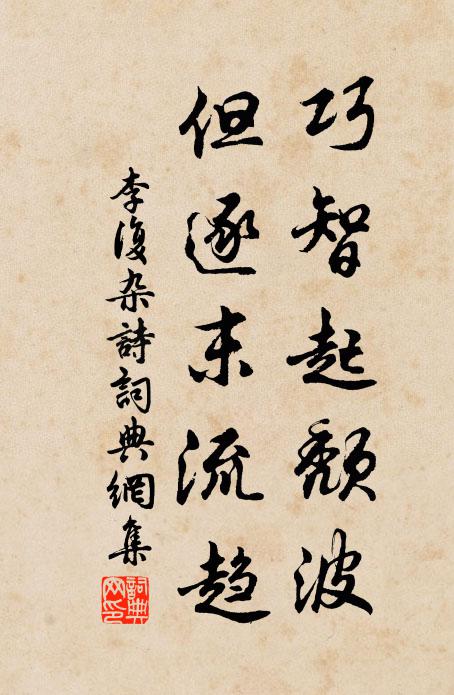 巧智起頹波
但逐末流趋
李復杂詩詞典網集
詞典網印